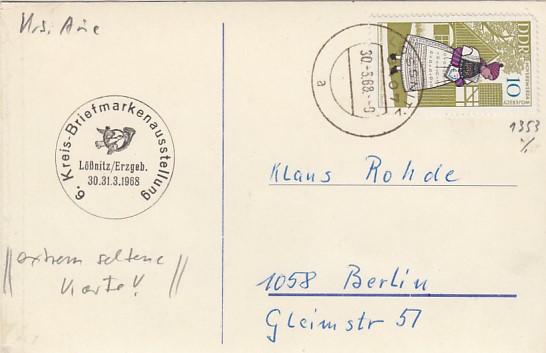 Krs. Aue
30.-3.68.-0
a
DDR
10
1353
6. Kreis-Briefmarkenausstellung
Lößnitz/Erzgeb.
30.31.3.1968
Klaus Rohde
extrem seltene
Karte!
1058 Berlin
Gleimstr 51